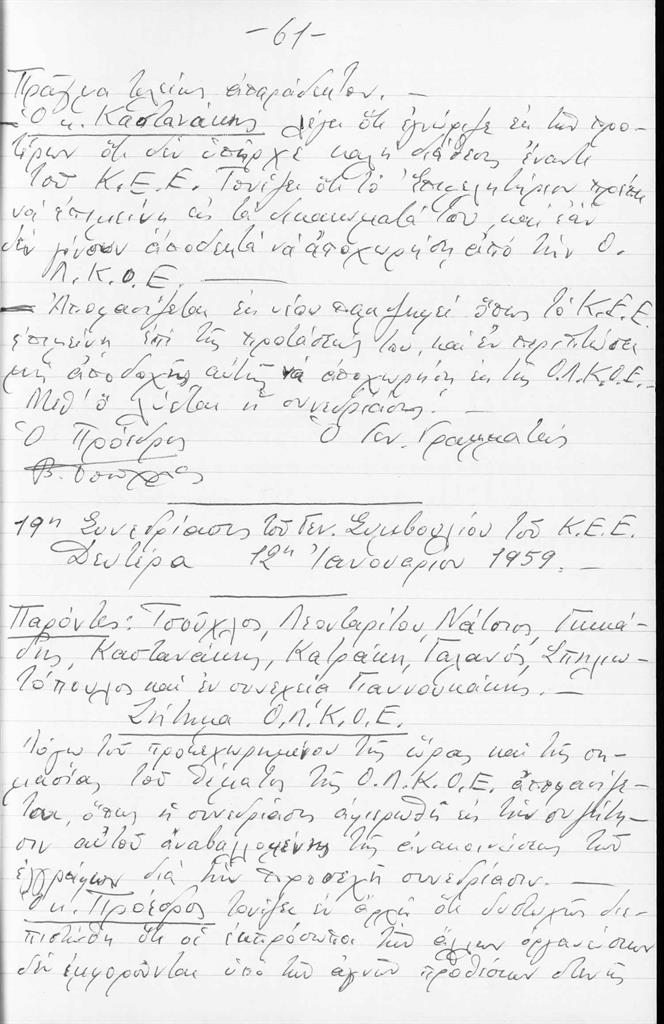 -61-
Πρᾶγμα τελείως ἀπαράδεκτον. —
— Ὁ κ. Καστανάκης λέγει ὅτι ἐγνώριζε ἐκ τῶν προ-
τέρων ὅτι δὲν ὑπῆρχε καλὴ διάθεσις ἔναντι
τοῦ Κ.Ε.Ε. Τονίζει ὅτι τὸ Ἐπιμελητήριον πρέπει
νὰ ἐπιμείνῃ εἰς τὰ δικαιώματά του, καὶ ἐὰν
δὲν γίνουν ἀποδεκτὰ νὰ ἀποχωρήσῃ ἀπὸ τὴν Ο.
Λ.Κ.Ο.Ε. —
— Ἀποφασίζεται ἐκ νέου παμψηφεὶ ὅπως τὸ Κ.Ε.Ε.
ἐπιμείνῃ ἐπὶ τῆς προτάσεώς του, καὶ ἐν περιπτώσει
μὴ ἀποδοχῆς αὐτῆς νὰ ἀποχωρήσῃ ἐκ τῆς Ο.Λ.Κ.Ο.Ε. —
Μεθ' ὃ λύεται ἡ συνεδρίασις. —
Ὁ Πρόεδρος Ὁ Γεν. Γραμματεὺς
Β. Τσοῦχλος
19η Συνεδρίασις τοῦ Γεν. Συμβουλίου τοῦ Κ.Ε.Ε.
Δευτέρα 12η Ἰανουαρίου 1959. —
Παρόντες: Τσοῦχλος, Λεονταρίτου, Νάτσιος, Γκικά-
δης, Καστανάκης, Κατράκη, Γαλανός, Σπηλιω-
τόπουλος καὶ ἐν συνεχείᾳ Γιαννουκάκης. —
Ζήτημα Ο.Λ.Κ.Ο.Ε.
Λόγω τοῦ προκεχωρημένου τῆς ὥρας καὶ τῆς ση-
μασίας τοῦ θέματος τῆς Ο.Λ.Κ.Ο.Ε. ἀποφασίζε-
ται, ὅπως ἡ συνεδρίασις ἀφιερωθῇ εἰς τὴν συζήτη-
σιν αὐτοῦ ἀναβαλλομένης τῆς ἀνακοινώσεως τῶν
ἐγγράφων διὰ τὴν προσεχῆ συνεδρίασιν. —
Ὁ κ. Πρόεδρος τονίζει ἐν ἀρχῇ ὅτι δυστυχῶς διε-
πιστώθη ὅτι οἱ ἐκπρόσωποι τῶν ἄλλων ὀργανώσεων
δὲν ἐμφοροῦνται ὑπὸ τῶν ἁγνῶν προθέσεων